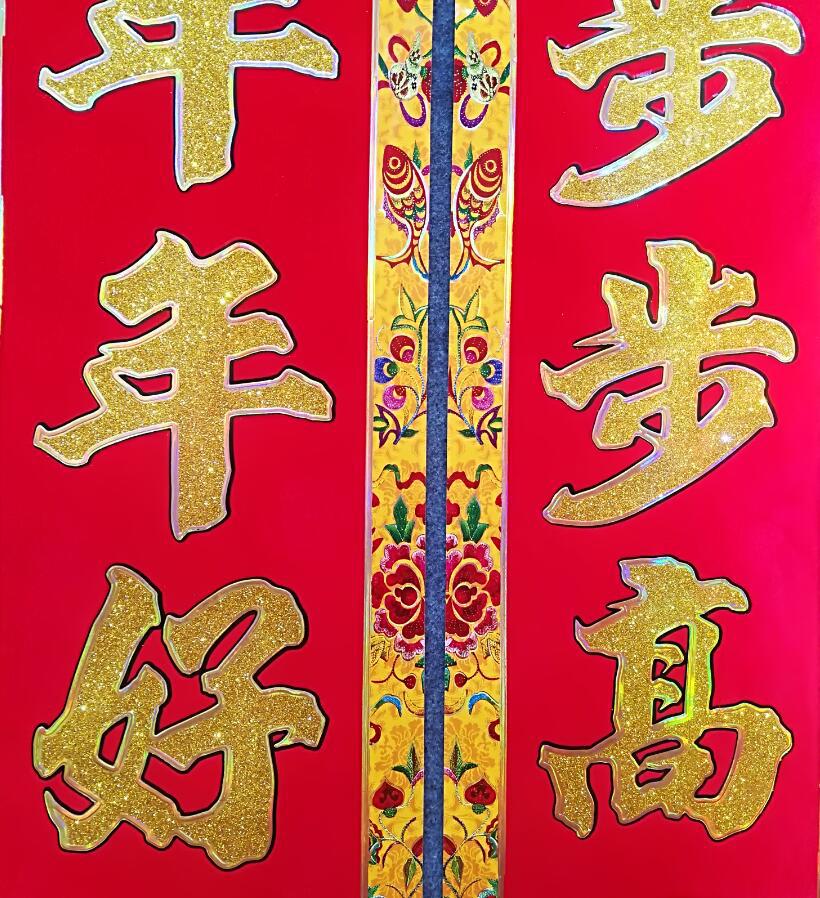 步步高
年年好